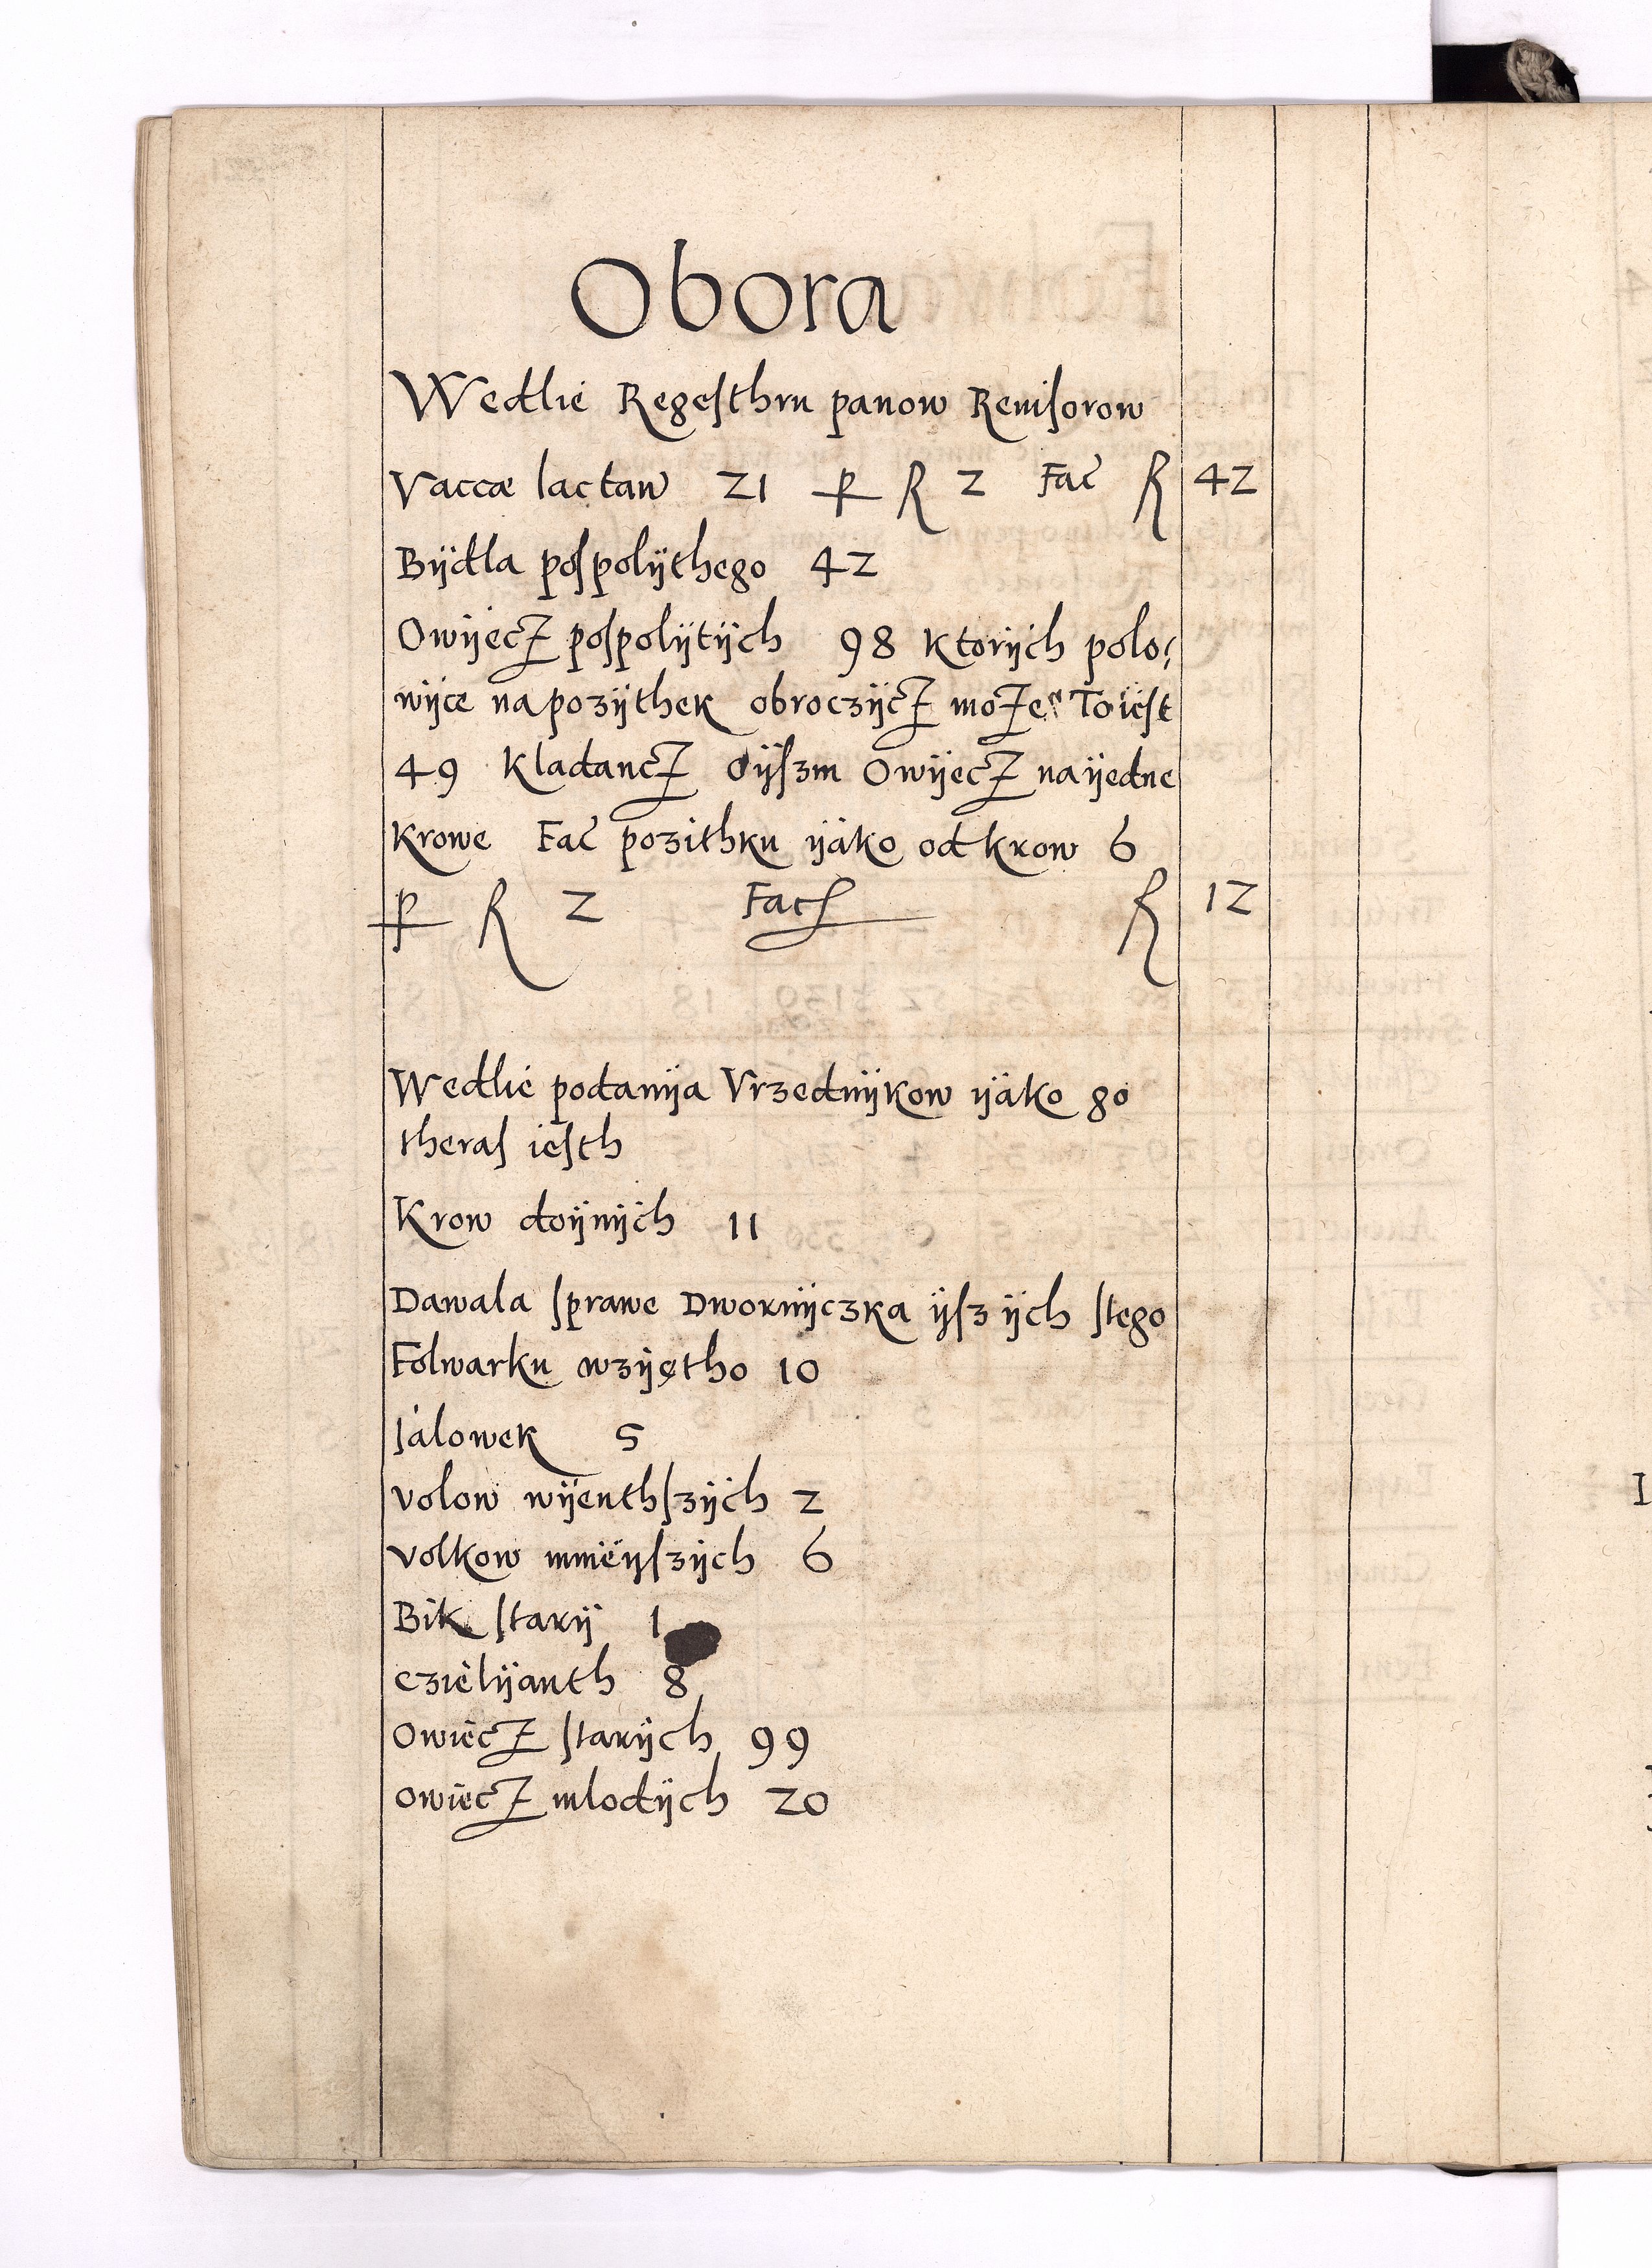 Obora
Wedlie Regeſthru panow Reuiſorow
Vaccæ lactan 21 P R 2 Fac R 42
Bÿdla poſpolÿthego 42
Owÿecz poſpolÿtÿch 98 ktorÿch polo:
wÿce na pozÿthek obroczÿcz może Toieſt
49 kladancz Oÿſzm Owÿecz na ÿedne
krowe Fac pozithku ÿako od krow 6
P R 2 Fac R 12
Wedlie podanÿa Vrzednÿkow ÿako go
theraſ ieſth
Krow doÿnÿch 11
Dawala ſprawe Dwornÿczka ÿſz ÿch ſtego
Folwarku wzÿętho 10
Jalowek 5
Volow wÿenthſzÿch 2
Volkow mnieÿſzÿch 6
Bik ſtarÿ 1
czielÿanth 8
Owiecz ſtarÿch 99
owiecz mlodÿch 20